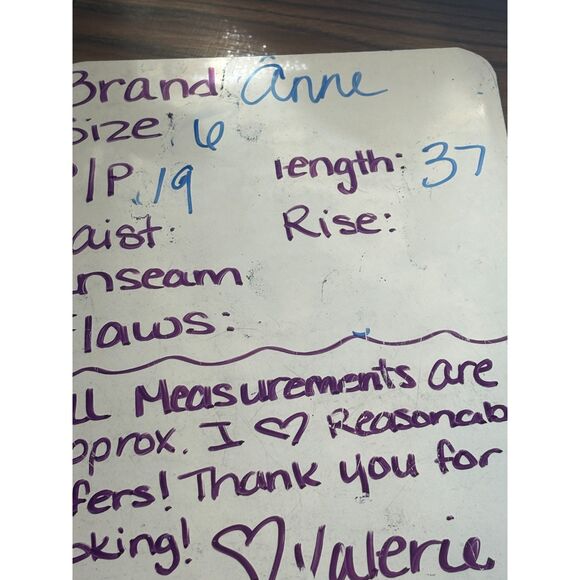 Brand Anne
Size: 6
P/P 19 length: 37
aist: Rise:
nseam
laws:
ll Measurements are
pprox. I ♡ Reasonab
ffers! Thank you for
oking! ♡ Valerie